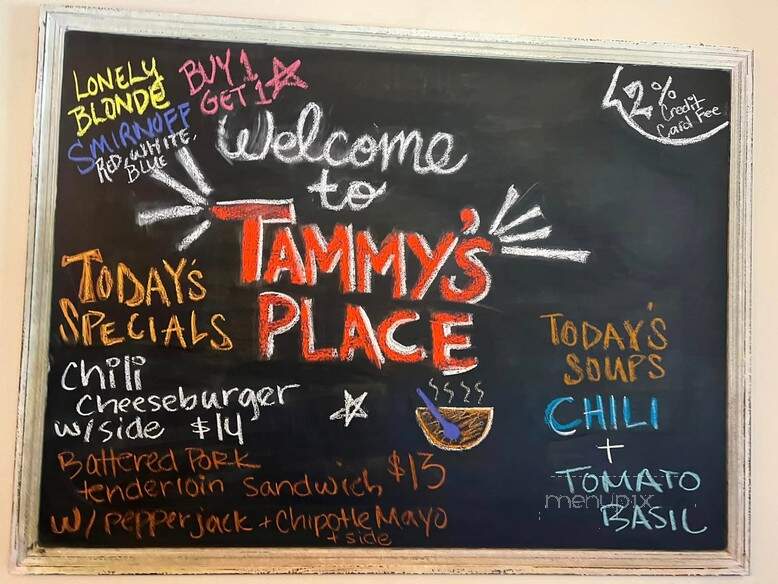 LONELY
BLONDE
SMIRNOFF
RED, WHITE,
BLUE
BUY 1
GET 1
Welcome
to
TAMMY'S
PLACE
2%
Credit
Card Fee
TODAY'S
SPECIALS
Chili
Cheeseburger
w/side $14
Battered Pork
tenderloin Sandwich $13
w/ pepperjack + Chipotle Mayo
+ side
TODAY'S
SOUPS
CHILI
+
TOMATO
BASIL
menupix